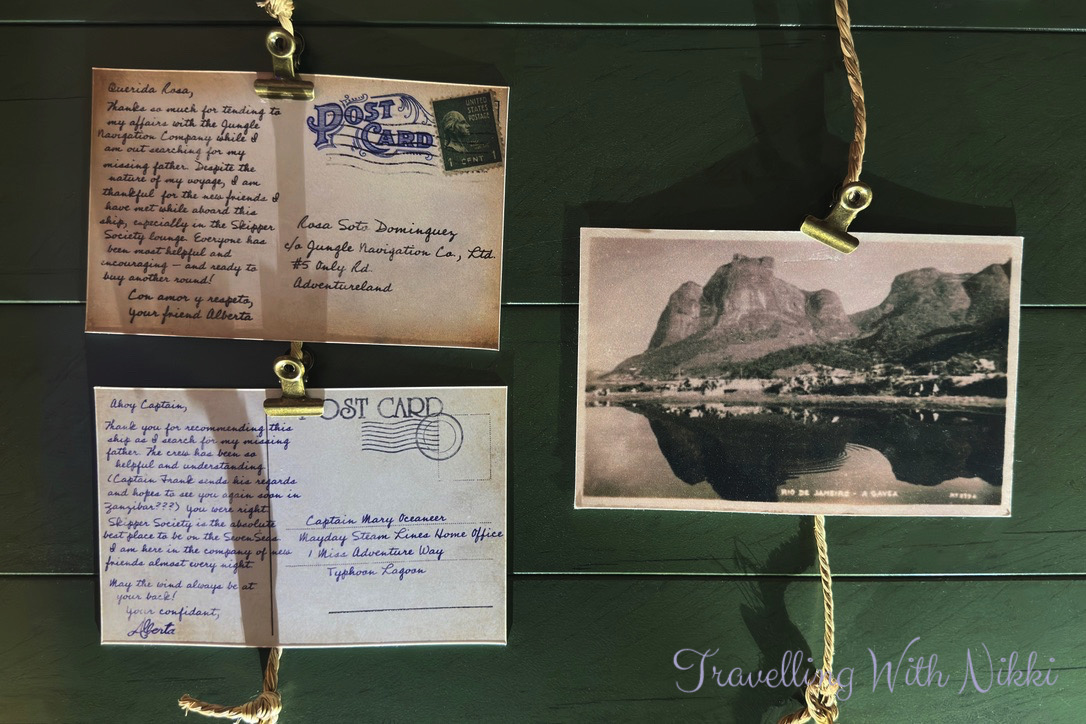 Querida Rosa,
Thanks so much for tending to
my affairs with the Jungle
Navigation Company while I
am out searching for my
missing father. Despite the
nature of my voyage, I am
thankful for the new friends I
have met while aboard this
ship, especially in the Skipper
Society lounge. Everyone has
been most helpful and
encouraging – and ready to
buy another round!
Con amor y respeto,
Your friend Alberta
POST
CARD
UNITED
STATES
POSTAGE
1 CENT 1
Rosa Soto Dominguez
c/o Jungle Navigation Co., Ltd.
#5 Only Rd.
Adventureland
Ahoy Captain,
Thank you for recommending this
ship as I search for my missing
father. The crew has been so
helpful and understanding
(Captain Frank sends his regards
and hopes to see you again soon in
Zanzibar???) You were right
Skipper Society is the absolute
best place to be on the SevenSeas.
I am here in the company of new
friends almost every night.
May the wind always be at
your back!
Your confidant,
Alberta
POST CARD
Captain Mary Oceaneer
Mayday Steam Lines Home Office
1 Miss Adventure Way
Typhoon Lagoon
RIO DE JANEIRO - A GAVEA
Travelling With Nikki